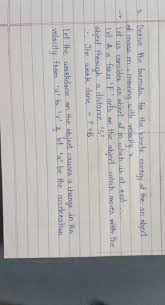 b. Derive the formula for the kinetic energy of the an object
of mass m, moving with velocity v.
→ Let us consider an object of m which is at rest
Let A a force 'F' acts on the object which moves with the
object through a distance 'S'
∴ The work done = F×S
Let the workdone on the object causes a change in its
velocity from 'u' to 'v', & let 'a' be the acceleration.